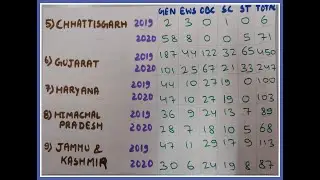 GEN EWS OBC SC ST TOTAL
5) CHHATTISGARH 2019 2 3 0 1 0 6
2020 58 8 0 0 5 71
6) GUJARAT 2019 187 44 122 32 65 450
2020 101 25 67 21 33 247
7) HARYANA 2019 44 10 27 19 0 100
2020 47 10 27 19 0 103
8) HIMACHAL 2019 36 9 24 13 7 89
PRADESH 2020 28 7 18 10 5 68
9) JAMMU & 2019 47 11 29 17 9 113
KASHMIR 2020 30 6 24 19 8 87